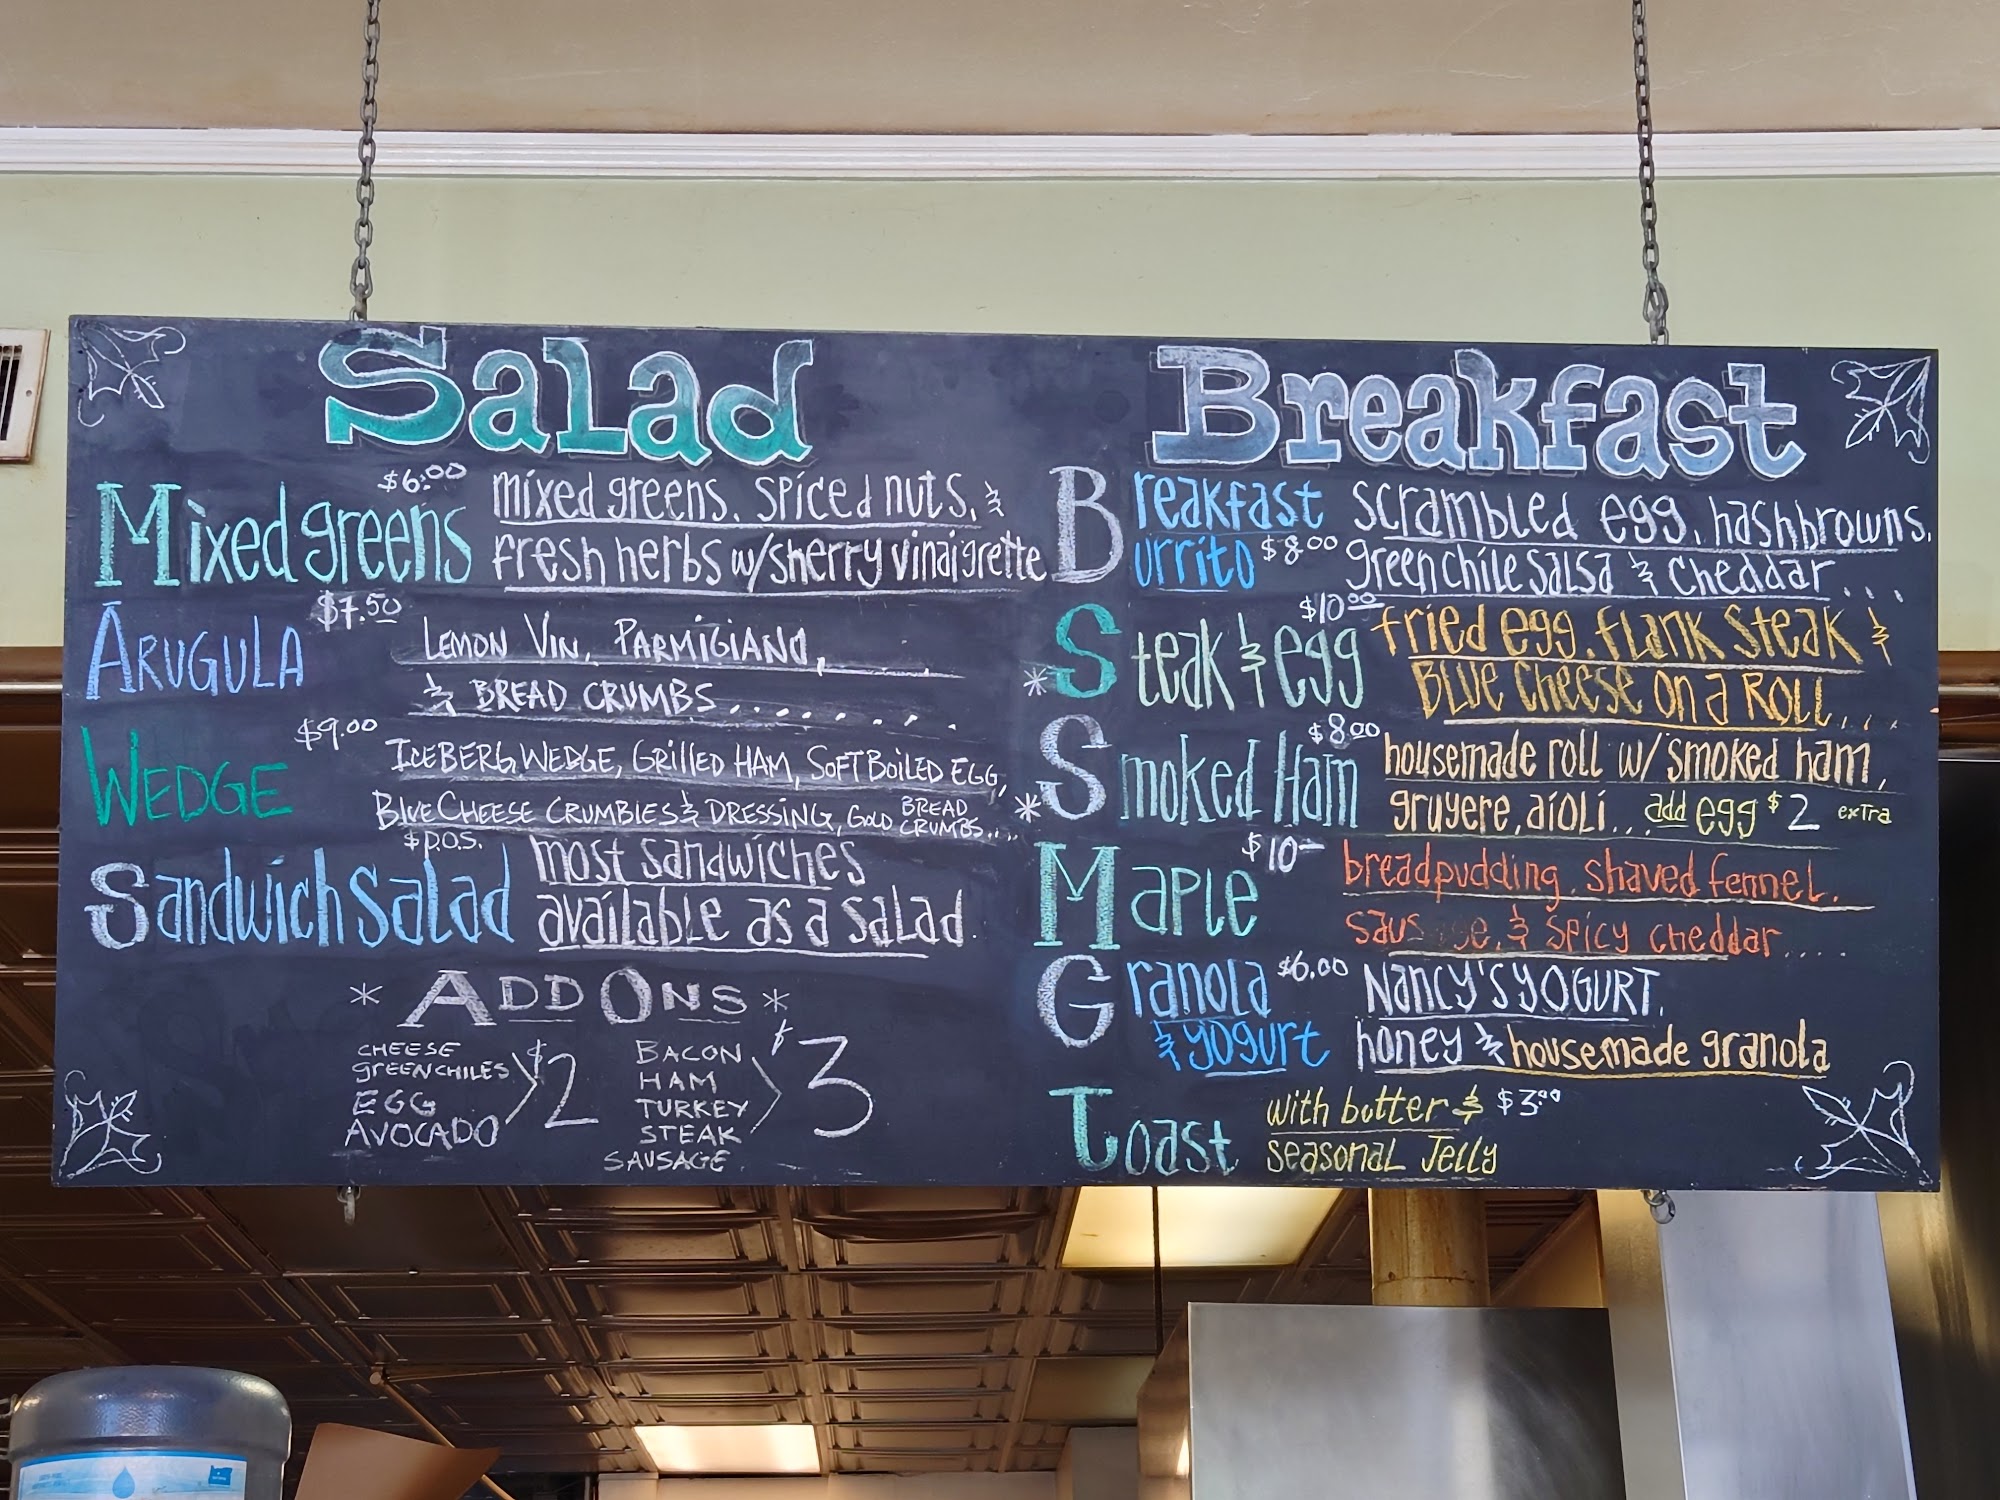 Salad
Mixed greens $6.00
mixed greens, spiced nuts, &
fresh herbs w/sherry vinaigrette
Arugula $7.50
Lemon Vin, Parmigiano,
& Bread Crumbs........
Wedge $9.00
Iceberg Wedge, Grilled Ham, Soft Boiled Egg,
Blue Cheese Crumbles & Dressing, Gold Bread Crumbs....
Sandwich Salad $P.O.S.
most sandwiches
available as a salad.
* Add Ons *
Cheese
Green Chiles
Egg
Avocado
$2
Bacon
Ham
Turkey
Steak
Sausage
$3
Breakfast
Breakfast
Burrito $8.00
scrambled egg, hashbrowns,
green chile salsa & cheddar....
* Steak & egg $10.00
fried egg, flank steak &
Blue Cheese on a Roll....
* Smoked Ham $8.00
housemade roll w/ smoked ham,
gruyere, aioli... add egg $2 extra
Maple $10-
bread pudding, shaved fennel,
sausage, & spicy cheddar.....
Granola $6.00
& yogurt
Nancy's yogurt,
honey & housemade granola
Toast
with butter & $3.00
seasonal Jelly